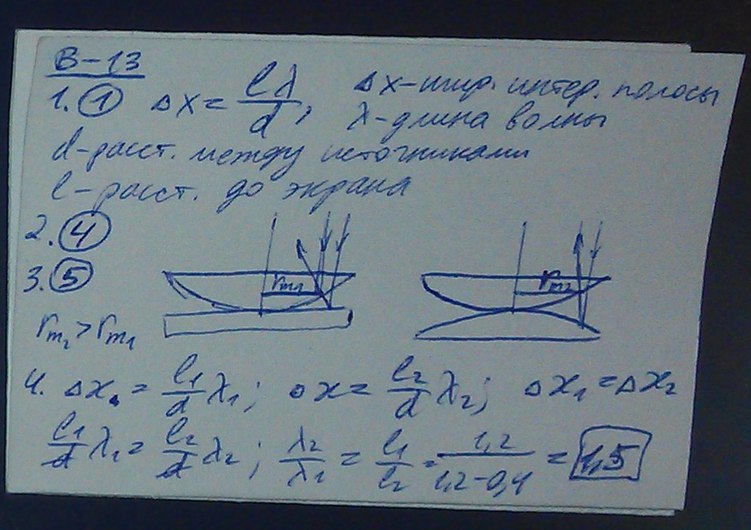 В-13
1. ① Δx = lλ/d, Δx - шир. интер. полосы
λ - длина волны
d - расст. между источниками
l - расст. до экрана
2. ④
3. ⑤
rm₁
rm₂
rm₂ > rm₁
4. Δx₁ = l₁/d λ₁; Δx = l₂/d λ₂; Δx₁ = Δx₂
l₁/d λ₁ = l₂/d λ₂; λ₂/λ₁ = l₁/l₂ = 1,2/1,2-0,4 = 1,5